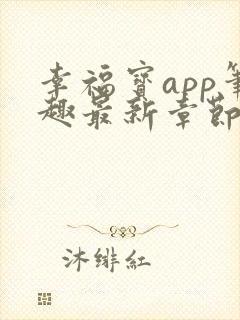 幸福寶app筆
趣最新章節
沐緋紅